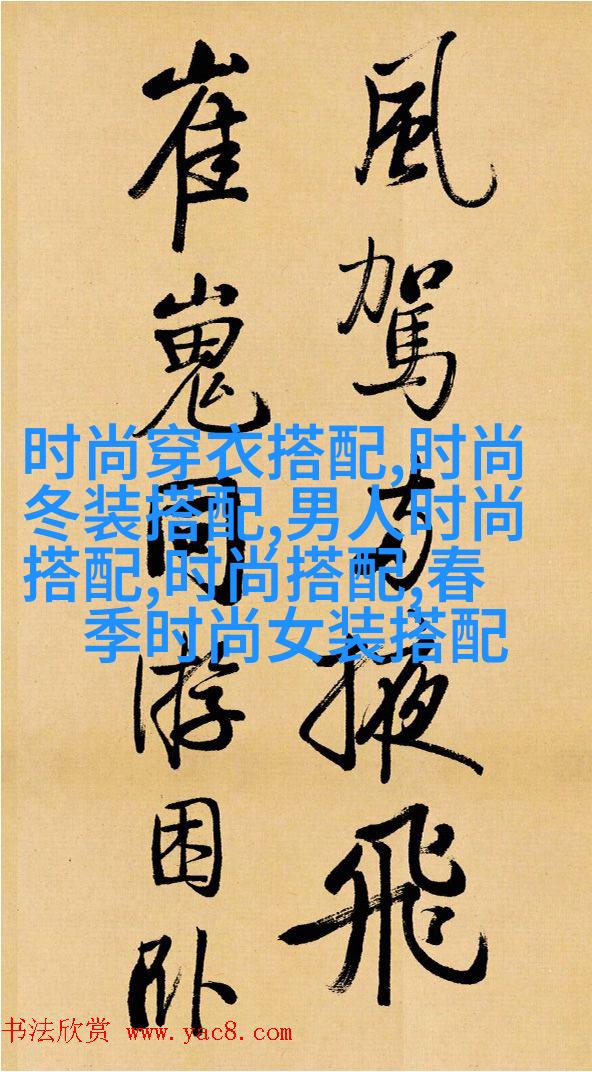 風駕掖飛
崔嵬同游困卧
时尚穿衣搭配,时尚
冬装搭配,男人时尚
搭配,时尚搭配,春
季时尚女装搭配
书法欣赏 www.yac8.com